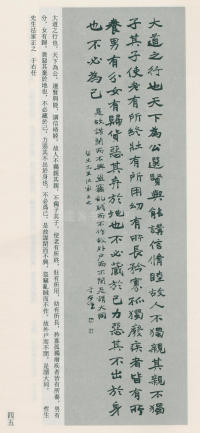 大道之行也天下為公選賢與能講信脩睦故人不獨親其親不獨
子其子使老有所終壯有所用幼有所長矜寡孤獨廢疾者皆有所
養男有分女有歸貨惡其棄於地也不必藏於己力惡其不出於身
也不必為己 是故謀閉而不興盜竊亂賊而不作故外戶而不閉是謂大同
哲生先生法家正之 于右任
大道之行也，天下為公，選賢與能，講信脩睦，故人不獨親其親，不獨子其子，使老有所終，壯有所用，幼有所長，矜寡孤獨廢疾者皆有所養，男有
分，女有歸，貨惡其棄於地也，不必藏於己，力惡其不出於身也，不必為己，是故謀閉而不興，盜竊亂賊而不作，故外戶而不閉，是謂大同。 哲生
先生法家正之 于右任
四五